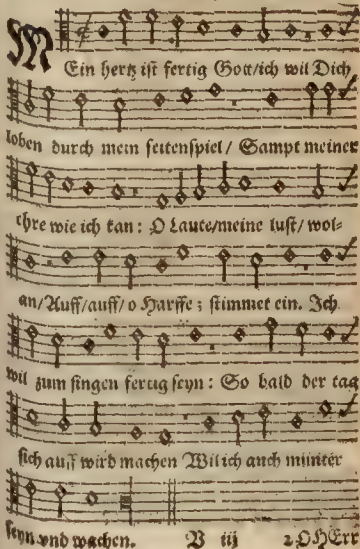 M
Ein hertz ist fertig Gott/ich wil Dich
loben durch mein seitenspiel/ Sampt meiner
ehre wie ich kan: O Laute/meine lust/ wol-
an/Auff/auff/o Harffe; stimmet ein. Ich
wil zum singen fertig seyn: So bald der tag
sich auff wird machen Wil ich auch munter
seyn vnd wachen. V iij 2 O HErr